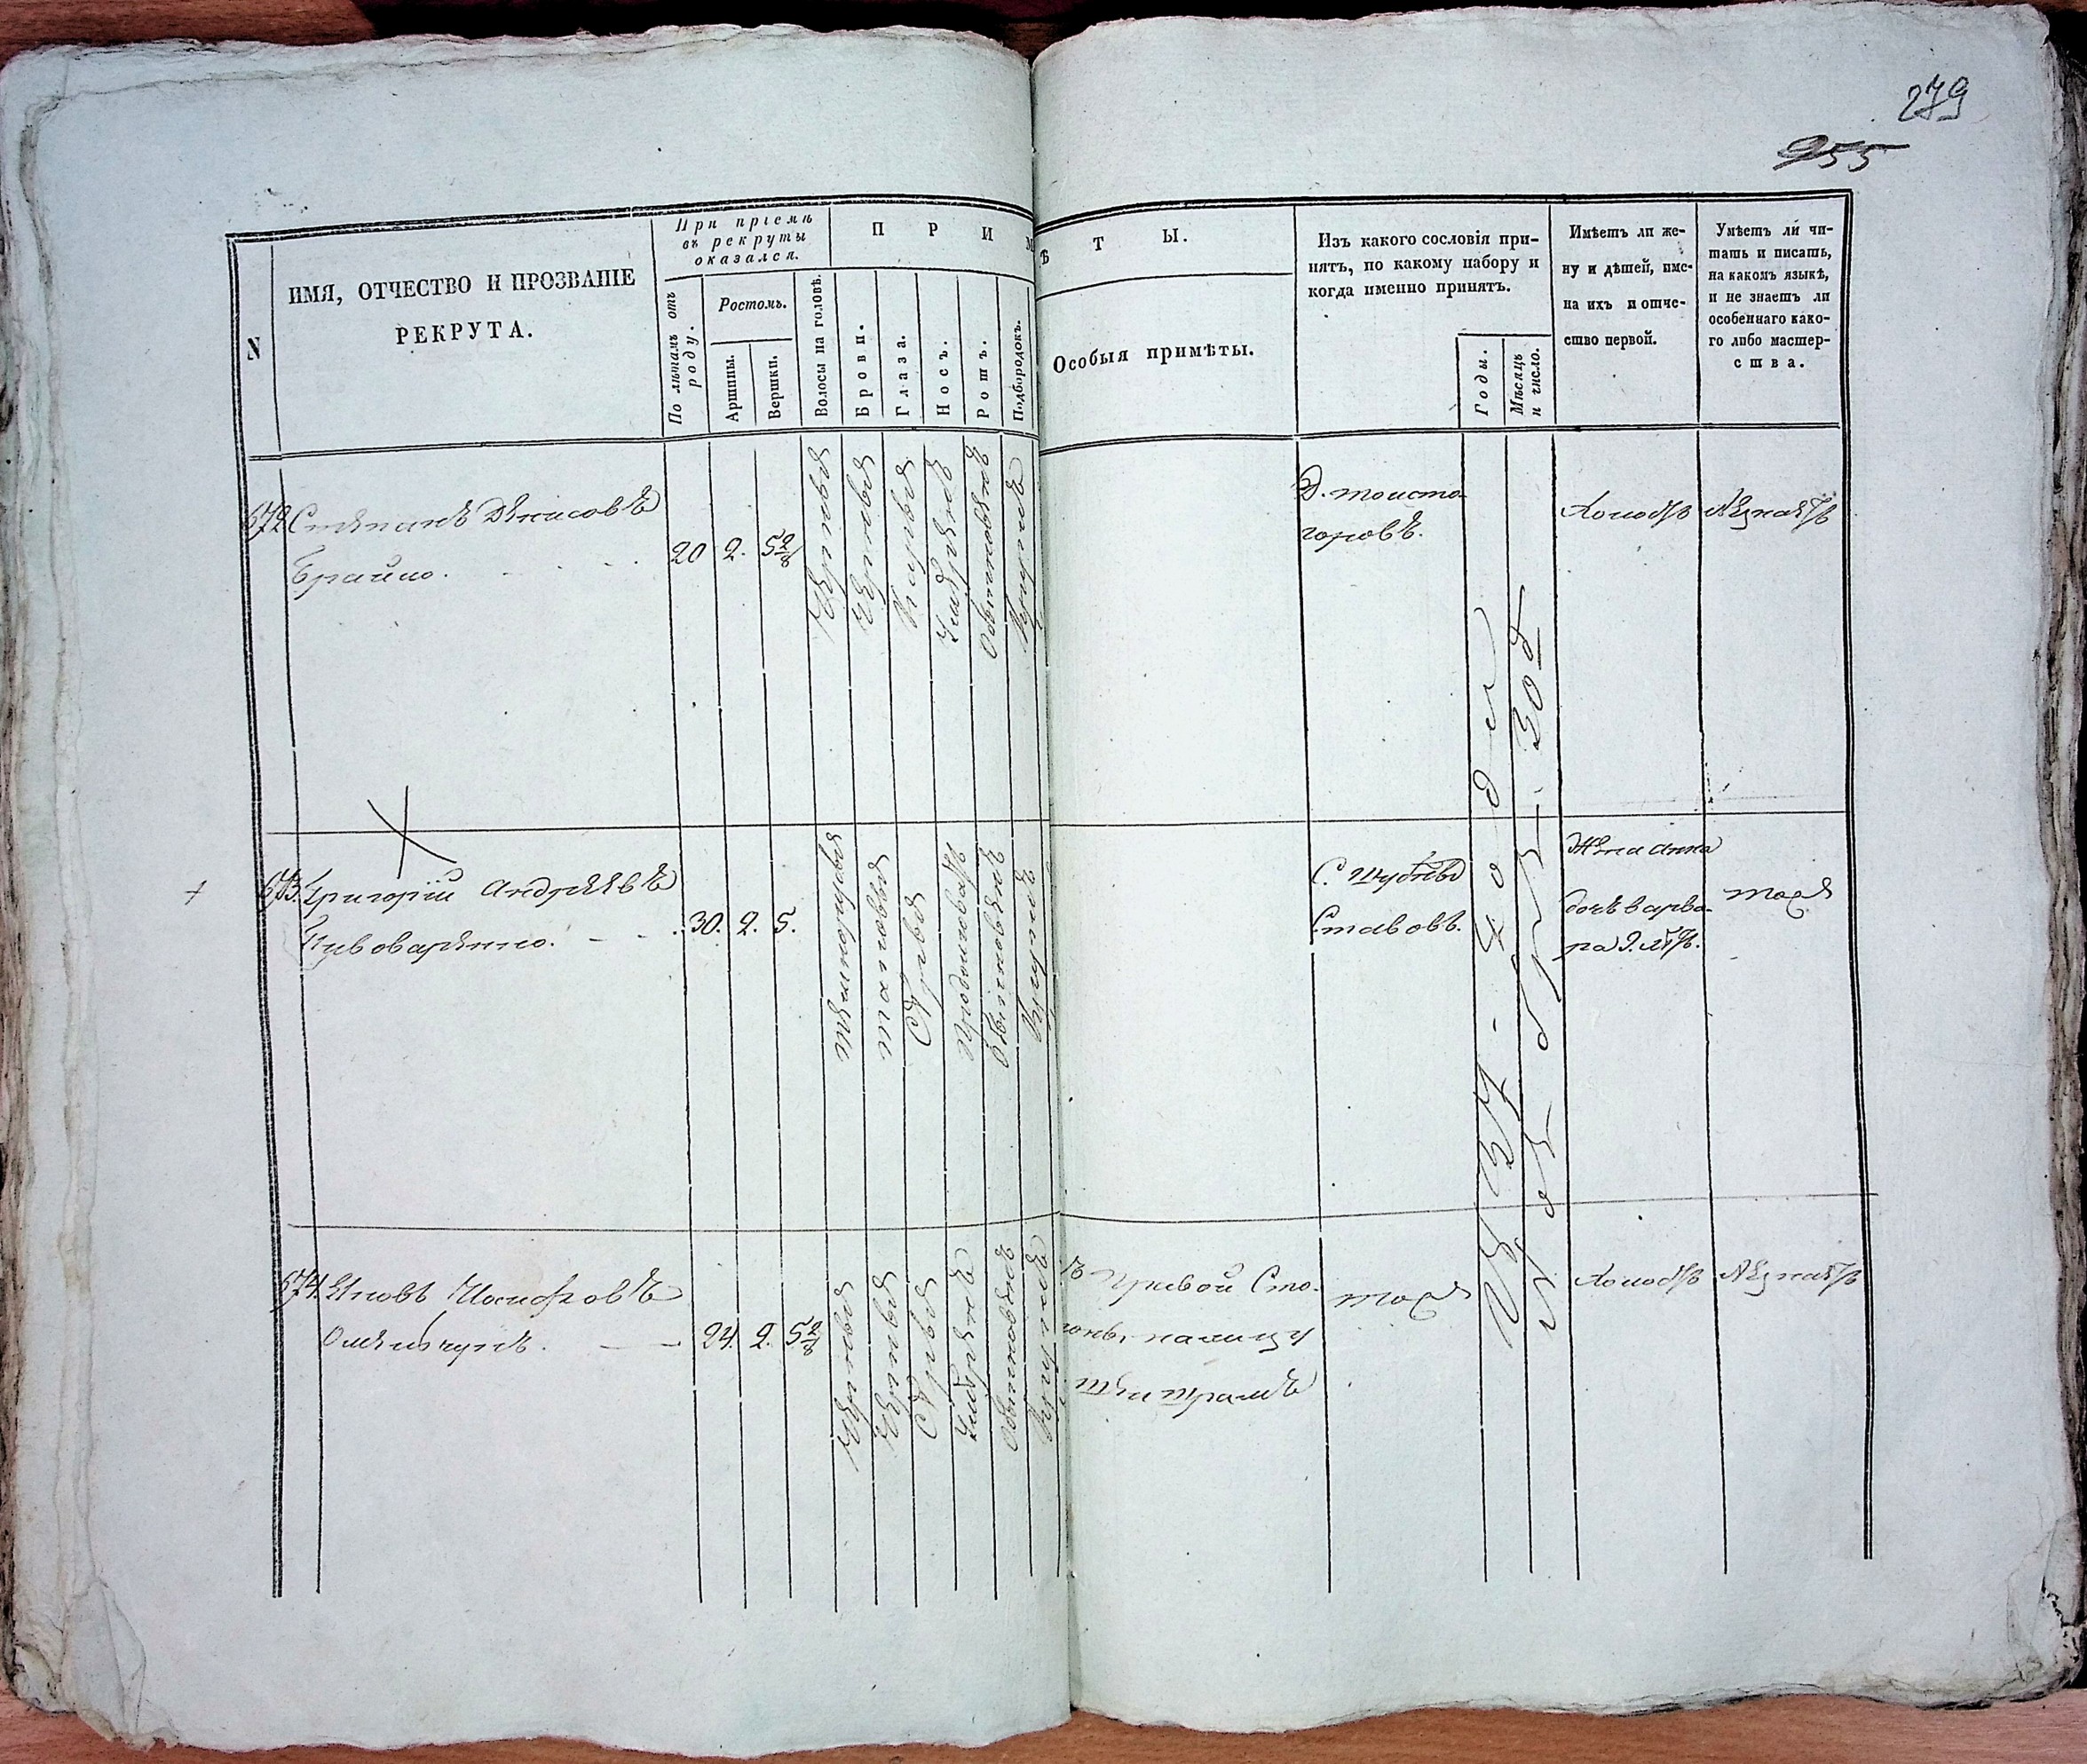 279
255
N
ИМЯ, ОТЧЕСТВО И ПРОЗВАНІЕ
РЕКРУТА.
При пріемѣ
въ рекруты
оказался.
По лѣтамъ отъ
роду.
Ростомъ.
Аршины.
Вершки.
П Р И М
Волосы на головѣ.
Брови.
Глаза.
Носъ.
Ротъ.
Подбородокъ.
Ѣ Т Ы.
Особыя примѣты.
Изъ какого сословія при-
нятъ, по какому набору и
когда именно принятъ.
Годы.
Мѣсяцъ
и число.
Имѣетъ ли же-
ну и дѣтей, имс-
на ихъ и отче-
ство первой.
Умѣетъ ли чи-
тать и писать,
на какомъ языкѣ,
и не знаетъ ли
особеннаго како-
го либо мастер-
ства.
672 Степанъ Денисовъ
20 2. 5 2/8
Черные
Черные
Каріе
Умѣренъ
Обыкновененъ
Круглъ
Д. Толсто
головъ.
Холостъ
Незнаетъ
673. Григорій Андреевъ
Пивоваренко.
30. 2. 5.
темнорусые
таковые
Сѣрые
Обыкновененъ
Круглъ
С.
Ставовъ.
Жена Анна
дочь Варва-
ра 2. лѣтъ.
тоже
674. Яковъ Іосифовъ
24. 2. 5 2/8
Черные
Черные
Сѣрые
Умѣренъ
Обыкновененъ
Круглъ
шрамъ
тоже
Холостъ
Незнаетъ
года
30